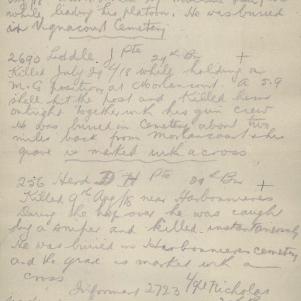 while leading his platoon. He was buried
in Vignacourt Cemetery
2690 Liddle. J Pte 29th Bn +
Killed July 29 4/18 while holding a
M.G position at Morlancourt. A 5.9
shell hit the post and killed him
outright together with his gun crew
He was buried in Cemetery about two
miles back from Morlancourt & his
grave is marked with a cross
256 Herd D H Pte 29th Bn +
Killed 9th Aug/18 near Harbonnieres
During the hop over he was caught
by a sniper and killed instantaneously
He was buried in Harbonnieres cemetery
and the grave is marked with a
cross
Informant 2723 Nicholas